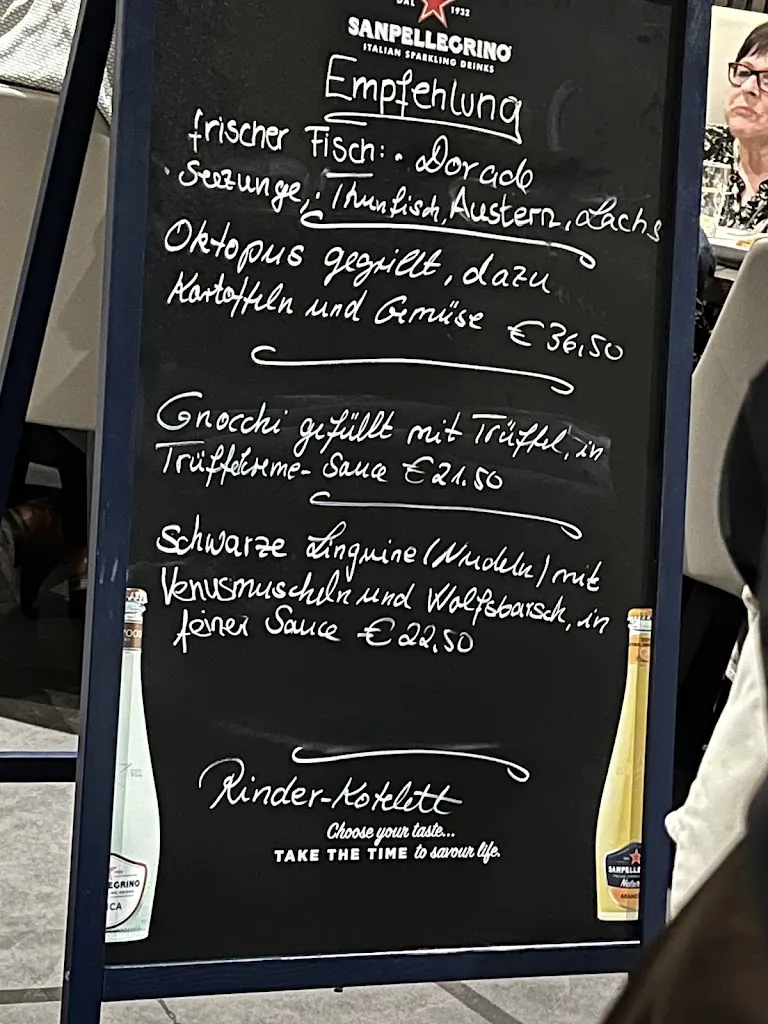 DAL 1932
SANPELLEGRINO
ITALIAN SPARKLING DRINKS
Empfehlung
frischer Fisch: · Dorade
· Seezunge, · Thunfisch, Austern, Lachs
Oktopus gegrillt, dazu
Kartoffeln und Gemüse €36,50
Gnocchi gefüllt mit Trüffel, in
Trüffelcreme- Sauce €21.50
Schwarze Linguine (Nudeln) mit
Venusmuscheln und Wolfsbarsch, in
feiner Sauce €22,50
Rinder-Kotelett
Choose your taste...
TAKE THE TIME to savour life.
EGRINO
CA
SANPELLE
Natur